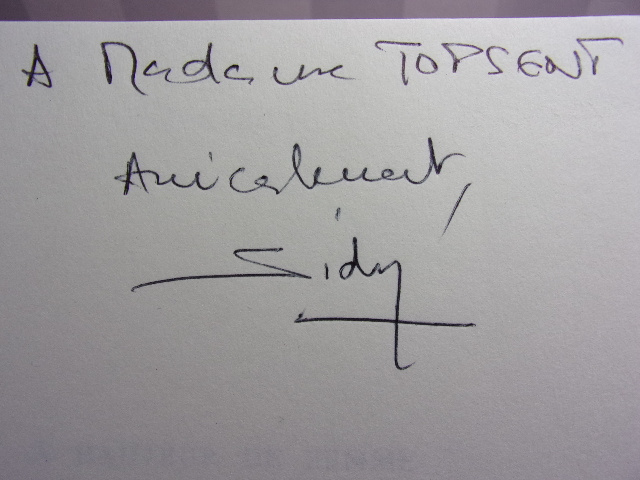 A Madame TOPSENT
Amicalement,
Sidy